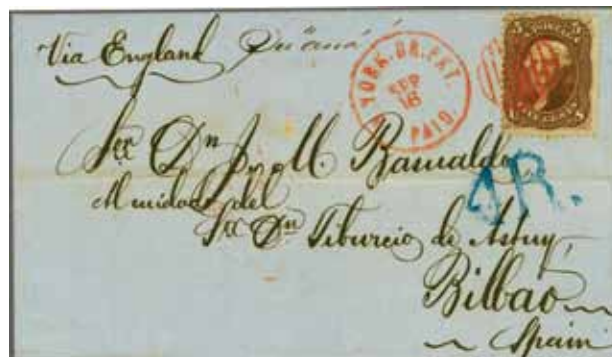 Via England
N. YORK. BR. PKT.
SEP
16
PAID.
5 5
Sr. Dn J. M.
al cuidado del
Sr. Dn Tiburcio de Astuy,
4R.
Bilbao
Spain